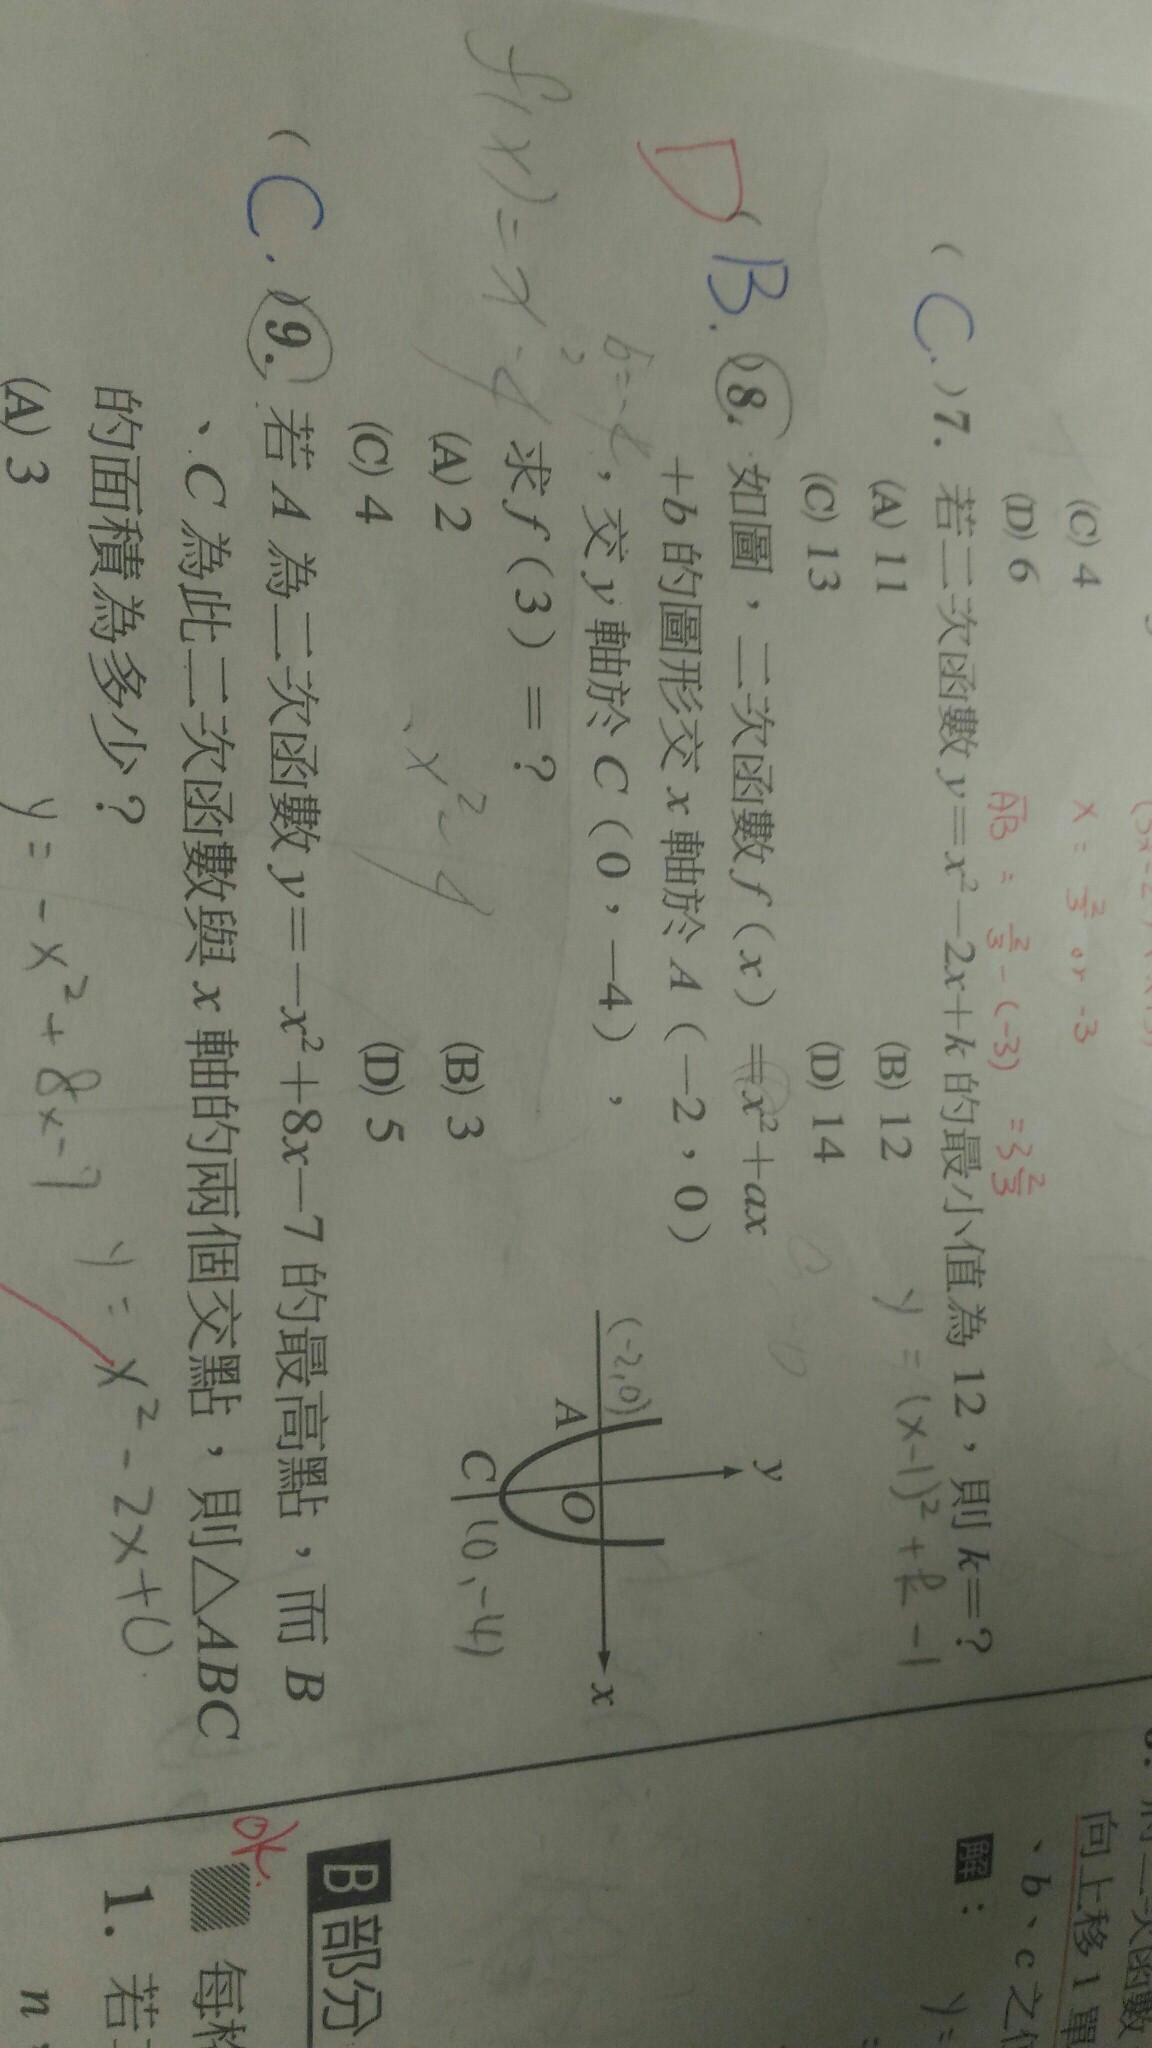 (C) 4
(D) 6
x = 2/3 or -3
AB = 2/3 - (-3) = 3 2/3
( C. ) 7. 若二次函數 y=x²-2x+k 的最小值為 12，則 k=?
(A) 11 (B) 12
y = (x-1)²+k-1
(C) 13 (D) 14
D
( B. ) 8. 如圖，二次函數 f(x)=x²+ax
+b 的圖形交 x 軸於 A(-2，0)
，交 y 軸於 C(0，-4)，
求 f(3)=?
(A) 2 (B) 3
(C) 4 (D) 5
y
(-2,0)
A
O
x
C
(0,-4)
x²-4
f(x)=x²-4
( C. ) 9. 若 A 為二次函數 y=-x²+8x-7 的最高點，而 B
、C 為此二次函數與 x 軸的兩個交點，則△ABC
的面積為多少?
(A) 3
y = -x²+8x-7
y = x²-2x+0
向上移 1 單
、b、c 之
解：
y=
B 部分
1. 若
n